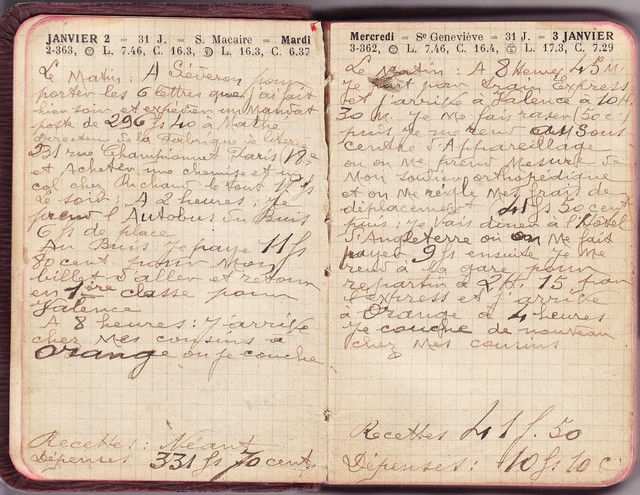 JANVIER 2 — 31 J. — S. Macaire — Mardi
2-363, L. 7.46, C. 16.3, L. 16.3, C. 6.37
Le Matin: A Séveron pour
porter les 6 lettres que j'ai fait
hier soir et expédier un Mandat
poste de 296 fs 40 à Mathe
Directeur de la Fabrique de literie
231 rue Championnet Paris 18e
et Acheter une chemise et un
col chez Richaud le tout 17 fs
Le soir: A 2 heures: je
prend l'Autobus du Buis
6 fs de place
Au Buis: je paye 11 fs
80 cent. pour Mon
billet d'aller et retour
en 1ère classe pour
Valence
A 8 heures: j'arrive
chez mes cousins a
Orange ou je couche
Recettes: Néant
Dépenses 331 fs 70 cent.
Mercredi — Se Geneviève — 31 J. — 3 JANVIER
3-362, L. 7.46, C. 16.4, L. 17.3, C. 7.29
Le Matin: A 8 Heures 45 M.
Je part par train Express
et j'arrive à Valence à 10 H
30 M. je me fais raser (50 c)
puis je me rend au Sous
centre d'Appareillage
ou on Me prend Mesure de
Mon soutien orthopédique
et on Me règle Mes frais de
déplacement 41 fs 50 cent
puis; je vais diner à l'Hôtel
d'Angleterre où on Me fait
payer 9 fs ensuite je Me
rend à la gare pour
repartir à 2 H. 15 par
l'express et j'arrive
à Orange à 4 heures
Je couche de nouveau
chez Mes cousins
Recettes 41 f. 50
Dépenses: 10 fs 10 c.